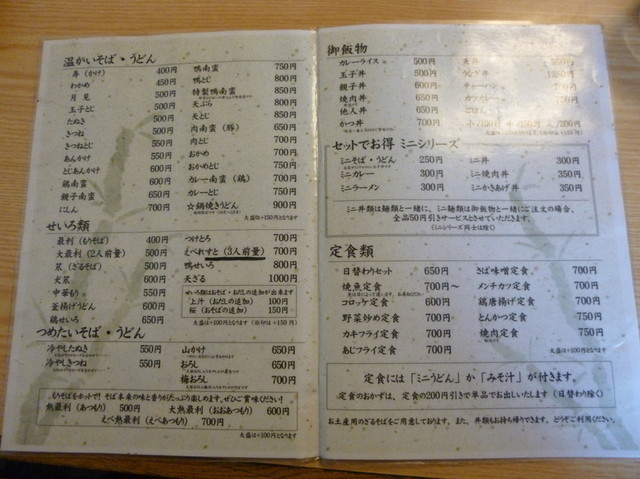 温かいそば・うどん
寿（かけ） 400円
わかめ 450円
月見 500円
玉子とじ 500円
たぬき 500円
きつね 500円
きつねとじ 550円
あんかけ 550円
とじあんかけ 600円
鶏南蛮 600円
親子南蛮 650円
にしん 700円
鴨南蛮 750円
鴨とじ 800円
特製鴨南蛮 850円
天ぷら 800円
天とじ 850円
肉南蛮（豚） 650円
肉とじ 700円
おかめ 700円
おかめとじ 750円
カレー南蛮（鶏） 700円
カレーとじ 750円
☆鍋焼きうどん 900円
大盛は+150円となります
せいろ類
最利（もりそば） 400円
大最利（2人前量） 500円
笊（ざるそば） 500円
大笊 600円
中華もり 550円
釜揚げうどん 600円
鶏せいろ 650円
つけとろ 700円
えべれすと（3人前量） 700円
鴨せいろ 800円
天ざる 1000円
せいろ類はおそば・おだしの追加が出来ます
上汁（おだしの追加） 100円
桜（おそばの追加） 150円
つめたいそば・うどん
冷やしたぬき 550円
冷やしきつね 550円
山かけ 650円
おろし 650円
梅おろし 700円
もりそばをホットで！そば本来の味と香りがたっぷり楽しめます。ぜひご賞味ください！
熱最利（あつもり） 500円 大熱最利（おおあつもり） 600円
えべ熱最利（えべあつもり） 700円
大盛は+100円となります
御飯物
カレーライス 500円
玉子丼 500円
親子丼 600円
焼肉丼 650円
他人丼 650円
かつ丼 700円
天丼
セットでお得 ミニシリーズ
ミニそば・うどん 250円
ミニカレー 300円
ミニラーメン 300円
ミニ丼 300円
ミニ焼肉丼 350円
ミニかきあげ丼 350円
ミニ丼類は麺類と一緒に、ミニ麺類は御飯物と一緒にご注文の場合、
全品50円引きサービスとさせていただきます。
（ミニシリーズ同士は除く）
定食類
日替わりセット 650円
焼魚定食 700円～
コロッケ定食 600円
野菜炒め定食 700円
カキフライ定食 700円
あじフライ定食 700円
さば味噌定食 700円
メンチカツ定食 700円
鶏唐揚げ定食 700円
とんかつ定食 750円
焼肉定食 750円
定食には「ミニうどん」か「みそ汁」が付きます。
定食のおかずは、定食の200円引きで単品でお出しいたします（日替わり除く）
お土産用のざるそばをご用意しております。また、丼類もお持ち帰りできます。どうぞご利用ください。